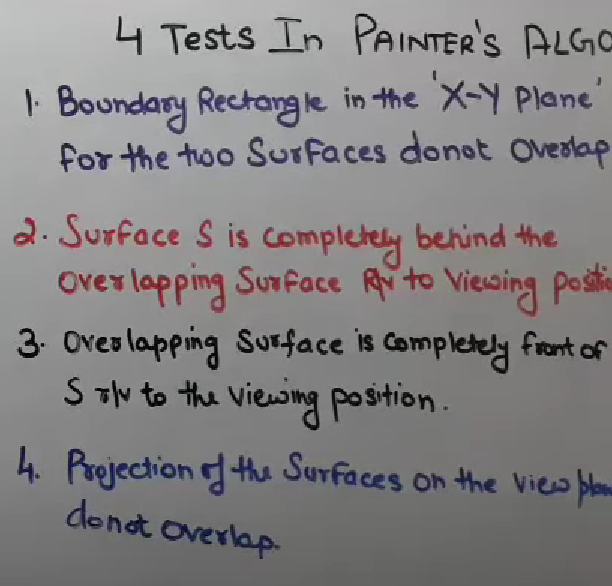 4 Tests In PAINTER'S ALGO
1. Boundary Rectangle in the 'X-Y Plane'
for the two Surfaces donot Overlap
2. Surface S is completely behind the
Overlapping Surface R/v to Viewing positio
3. Overlapping Surface is Completely front of
S r/v to the viewing position.
4. Projection of the Surfaces on the view plan
donot overlap.